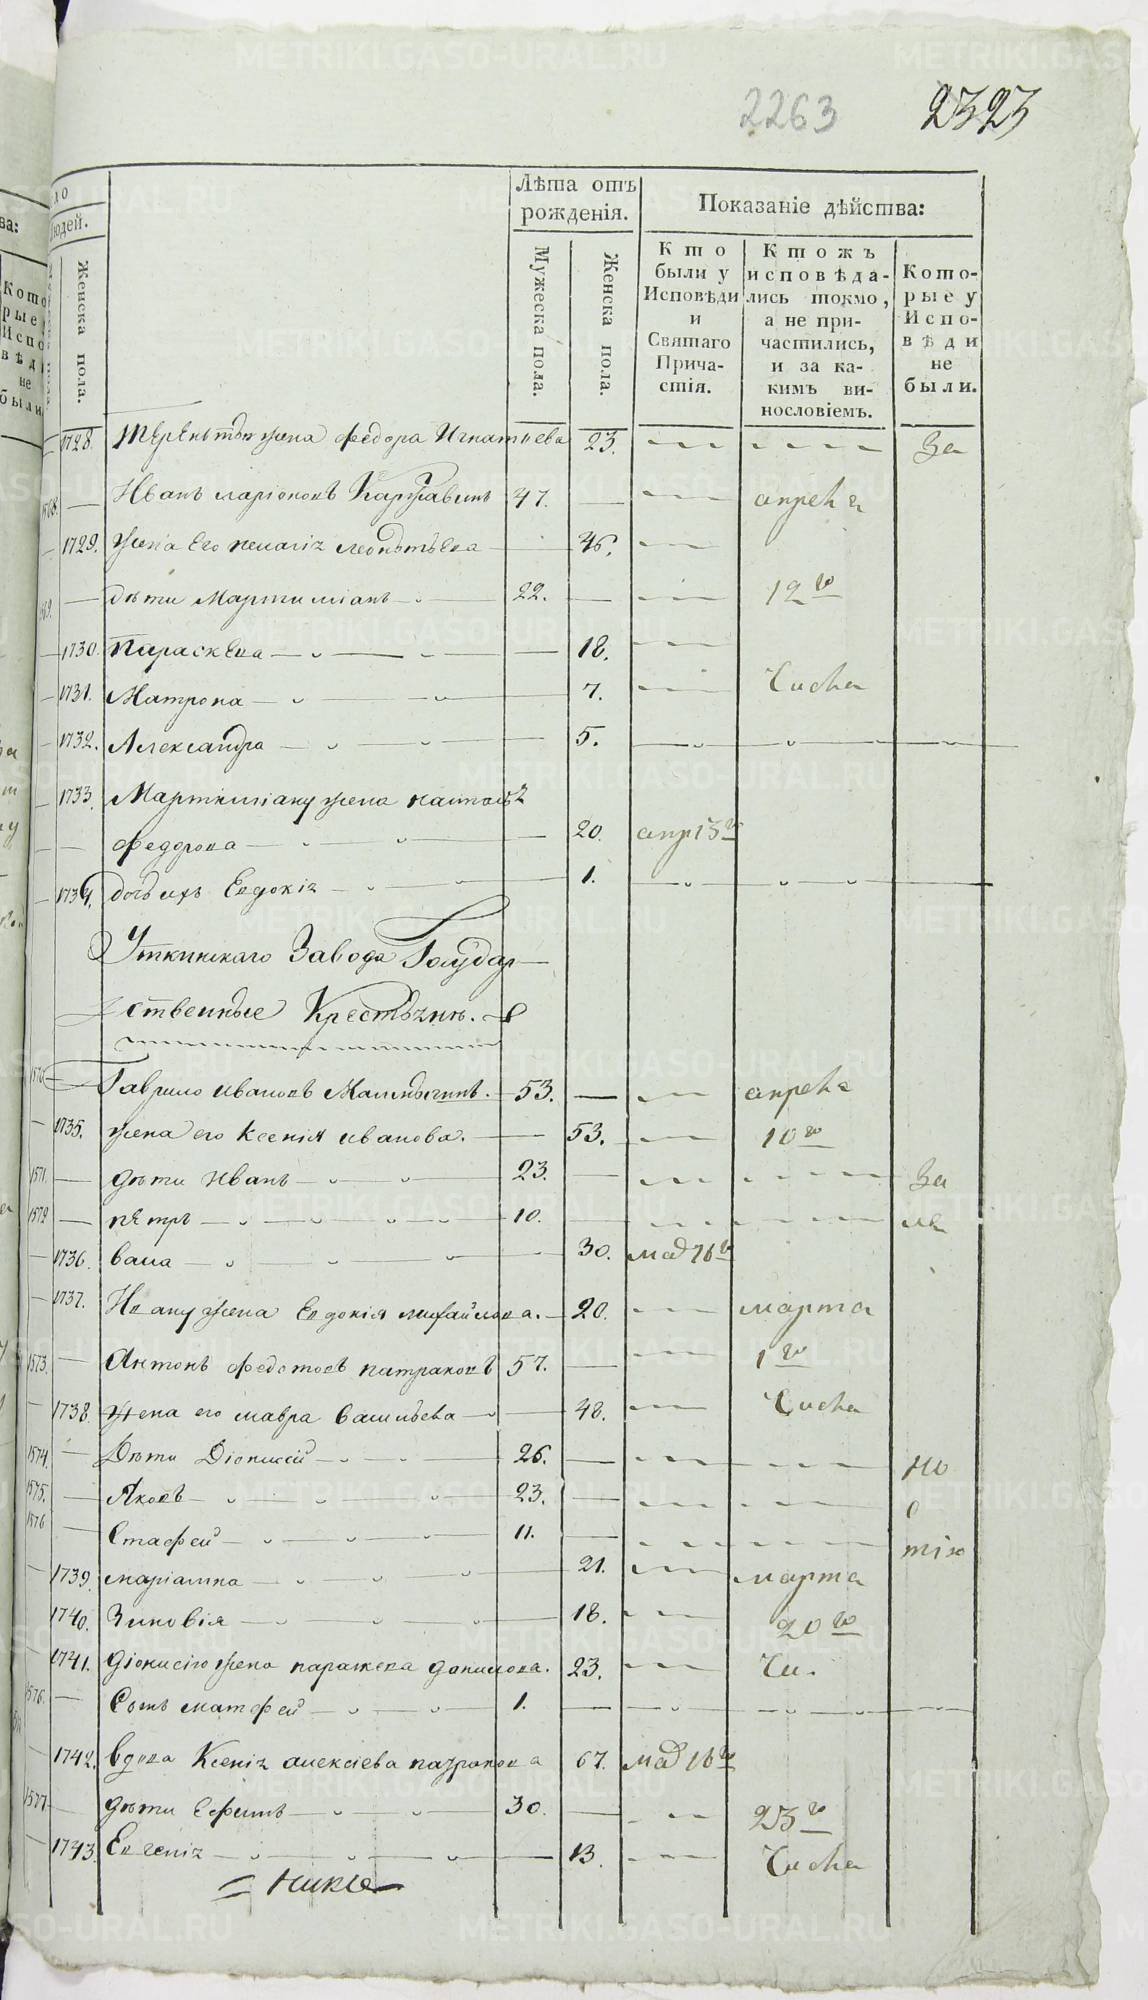 2263 2323
Лѣта отъ рожденія. Показаніе дѣйства:
Людей.
Женска пола.
Мужеска пола.
Женска пола.
Кто были у Исповѣди и Святаго Причастія.
Ктожъ исповѣдались токмо, а не причастились, и за какимъ винословіемъ.
Которые у Исповѣди не были.
1728. жена Федора Игнатьева 23. За
Иванъ Ларіоновъ 47. апреля
1729. жена его пелагія леонтьева 46.
дѣти Мартиміанъ 22. 12го
1730. Параскева 18.
1731. Матрона 7. Числа
1732. Александра 5.
1733. Мартиміану жена наталья
федорова 20. апр 13го
1734. дочь ихъ Евдокія 1.
Уткинскаго Завода Государ
ственные Крестьяне.
Гаврило ивановъ 53. апреля
1735. жена его Ксенія иванова. 53. 10го
1571. дѣти Иванъ 23. За
1572 петръ 10.
1736. васса 30. маія 16го
1737. Ивану жена Евдокія михайлова. 20. марта
1573. Антонъ федотовъ патраковъ 57. 1го
1738. жена его мавра васильева 48. Числа
1574. Дѣти Діонисій 26. но
1575. Яковъ 23. с
1576 Стафей 11. тію
1739. маріамна 21. марта
1740. Зиновія 18. 20го
1741. діонисію жена параскева данилова. 23. Чи.
1576. Сынъ матфей 1.
1742. вдова Ксенія алексіева патракова 67. маія 16го
1577 дѣти Ефимъ 30. 23го
1743. Евгенія 13. Числа